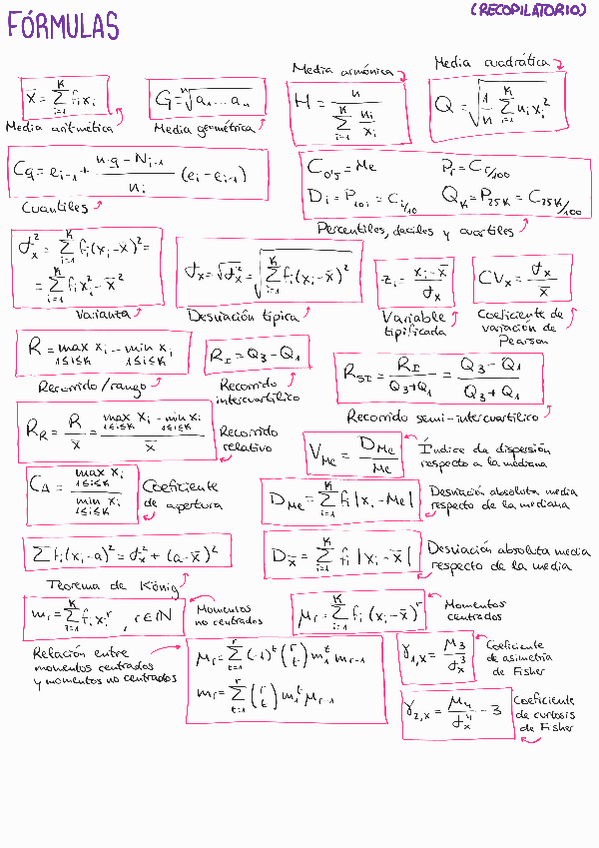 FÓRMULAS
(RECOPILATORIO)
x̄ = Σ_{i=1}^{K} f_i x_i
Media aritmética
G = ⁿ√(a_1 ... a_n)
Media geométrica
Media armónica
H = n / Σ_{i=1}^{K} (n_i / x_i)
Media cuadrática
Q = √(1/n Σ_{i=1}^{K} n_i x_i²)
C_q = e_{i-1} + (n·q - N_{i-1}) / n_i (e_i - e_{i-1})
Cuantiles
C_{0'5} = Me P_r = C_{r/100}
D_i = P_{10i} = C_{i/10} Q_K = P_{25K} = C_{25K/100}
Percentiles, deciles y cuartiles
σ_x² = Σ_{i=1}^{K} f_i (x_i - x̄)² =
= Σ_{i=1}^{K} f_i x_i² - x̄²
Varianza
σ_x = √σ_x² = √(Σ_{i=1}^{K} f_i (x_i - x̄)²)
Desviación típica
z_i = (x_i - x̄) / σ_x
Variable
tipificada
CV_x = σ_x / x̄
Coeficiente de
variación de
Pearson
R = max x_i - min x_i
1≤i≤K 1≤i≤K
Recorrido/rango
R_I = Q_3 - Q_1
Recorrido
intercuartílico
R_{SI} = R_I / (Q_3 + Q_1) = (Q_3 - Q_1) / (Q_3 + Q_1)
Recorrido semi-intercuartílico
R_R = R / x̄ = (max_{1≤i≤K} x_i - min_{1≤i≤K} x_i) / x̄
Recorrido
relativo
V_{Me} = D_{Me} / Me
Índice de dispersión
respecto a la mediana
C_A = max_{1≤i≤K} x_i / min_{1≤i≤K} x_i
Coeficiente
de apertura
D_{Me} = Σ_{i=1}^{K} f_i |x_i - Me|
Desviación absoluta media
respecto de la mediana
Σ f_i (x_i - a)² = σ_x² + (a - x̄)²
Teorema de König
D_x̄ = Σ_{i=1}^{K} f_i |x_i - x̄|
Desviación absoluta media
respecto de la media
m_r = Σ_{i=1}^{K} f_i x_i^r , r ∈ ℕ
Momentos
no centrados
μ_r = Σ_{i=1}^{K} f_i (x_i - x̄)^r
Momentos
centrados
Relación entre
momentos centrados
y momentos no centrados
μ_r = Σ_{t=1}^{r} (-1)^t (r t) m_1^t m_{r-1}
m_r = Σ_{t=1}^{r} (r t) m_1^t μ_{r-1}
γ_{1,x} = μ_3 / σ_x³
Coeficiente
de asimetría
de Fisher
γ_{2,x} = μ_4 / σ_x⁴ - 3
Coeficiente
de curtosis
de Fisher